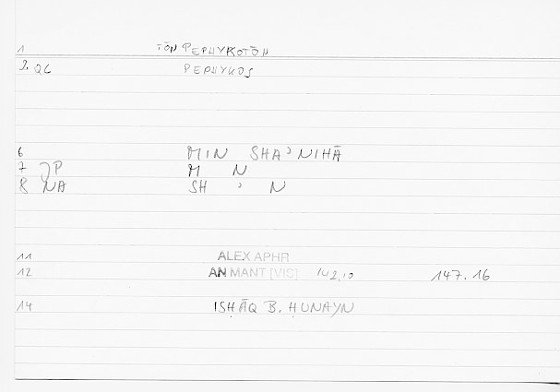 1 TŌN PEPHYKOTŌN
2. QL PEPHYKOS
6 MIN SHAʾNIHĀ
7 JP M N
8 NA SH ʾ N
11 ALEX APHR
12 AN MANT [VIS] 142.10 147.16
14 ISḤĀQ B. ḤUNAYN